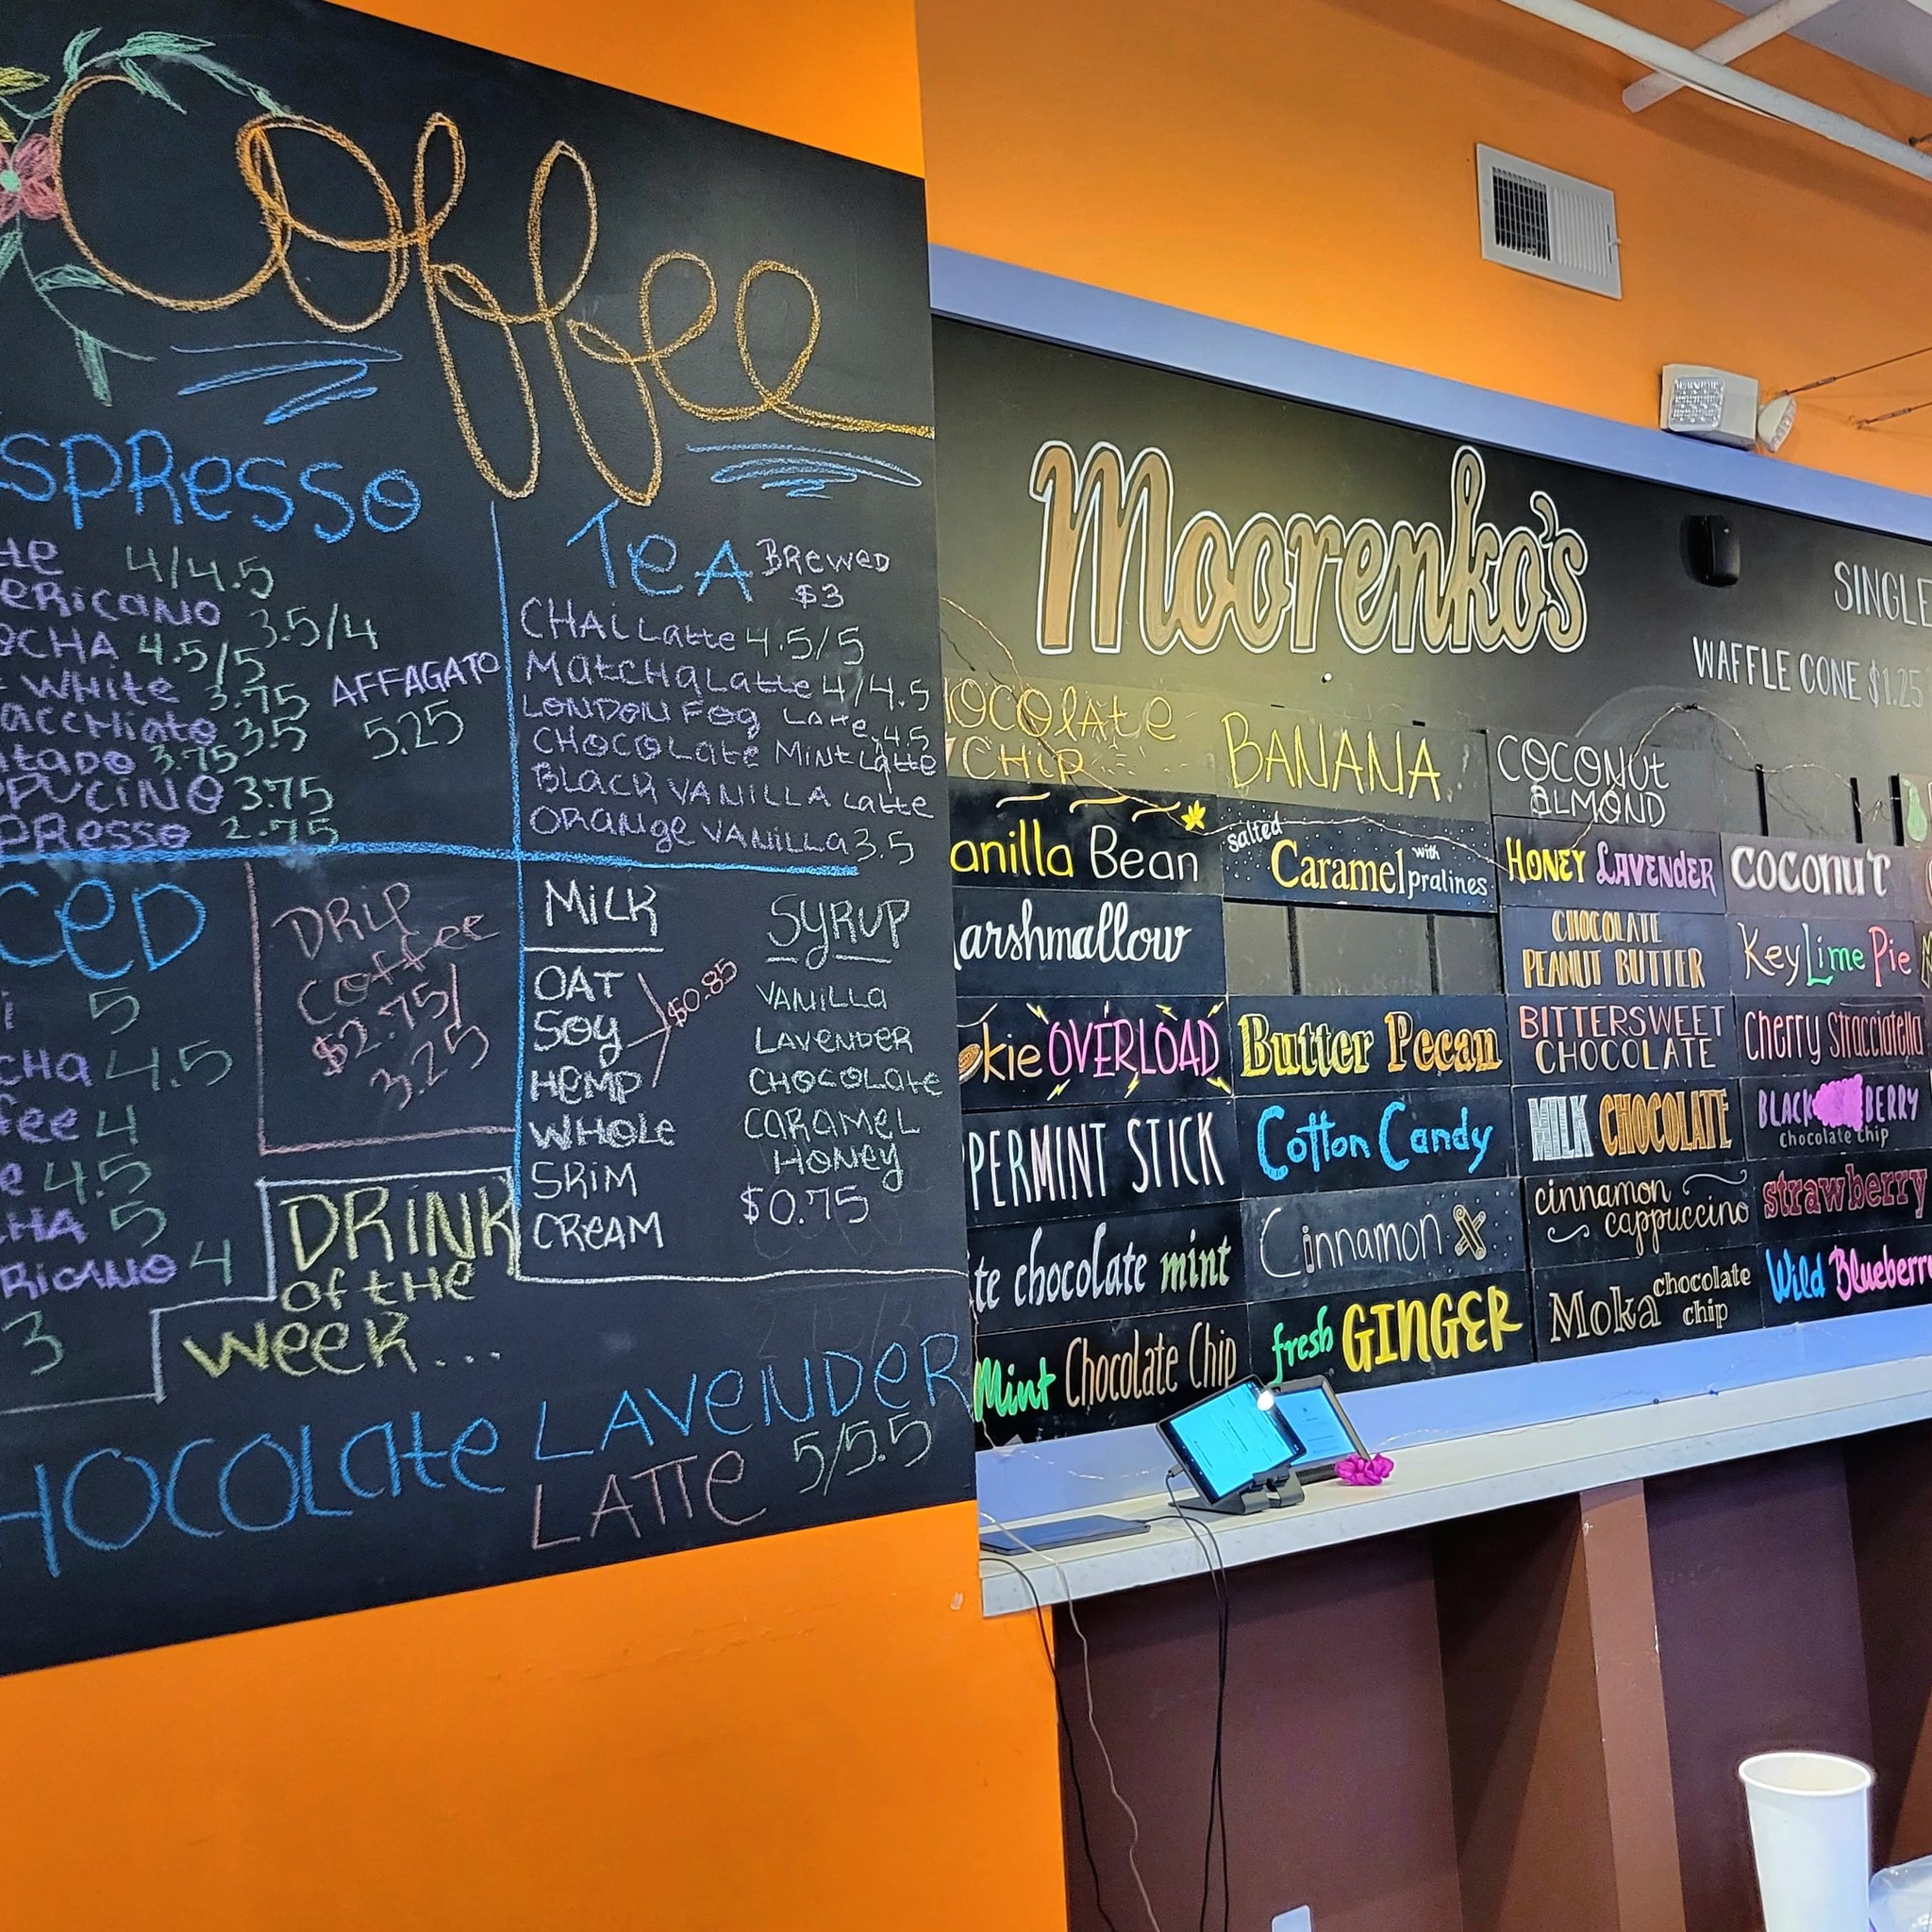 Coffee
SPResso
4/4.5
eRicaNo 3.5/4
OCHA 4.5/5
WHite 3.75
acchiato 3.5
tado 3.75
PPUCiNO 3.75
PResso 2.75
AFFAGATO
5.25
TeA BRewed
$3
CHAi Latte 4.5/5
MatCHa Latte 4/4.5
LONDON FOg Latte 4.5
CHOCOLate MiNt Latte
BLACK VANiLLA Latte
ORaNge VANiLLA 3.5
CeD
i 5
CHa 4.5
fee 4
e 4.5
HA 5
RiCANO 4
3
DRiP
Coffee
$2.75/
3.25
MiLK
OAT
SOy
HeMP
$0.85
WHOLe
SKiM
CReAM
SyRUP
VANiLLA
LAVeNDeR
CHOCOLate
CARAMeL
HONey
$0.75
DRiNK
of tHe
Week...
HOCOLate LAVeNDeR
LATTe 5/5.5
Moorenko's
SINGLE
WAFFLE CONE $1.25
HOCOLAte
CHiP
BANANA
COCONUt
ALMOND
anilla Bean
salted Caramel with pralines
HONEY LAVENDER
COCONUT
arshmallow
CHOCOLATE
PEANUT BUTTER
Key Lime Pie
kie OVERLOAD
Butter Pecan
BITTERSWEET
CHOCOLATE
Cherry Stracciatella
PERMINT STICK
Cotton Candy
MILK CHOCOLATE
BLACKBERRY
chocolate chip
te chocolate mint
Cinnamon
cinnamon
cappuccino
strawberry
Mint Chocolate Chip
fresh GINGER
Moka chocolate
chip
Wild Blueberry